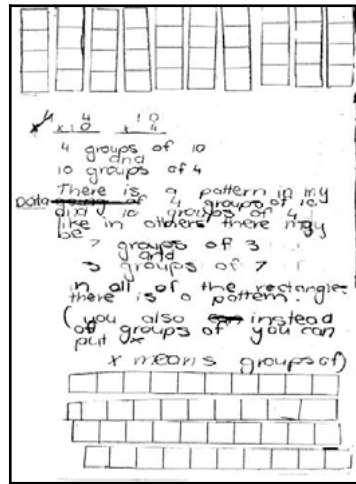 4 10
x10 x 4
4 groups of 10
and
10 groups of 4
There is a pattern in my
Data of 4 groups of 10
and 10 groups of 4
like in others there may
be
7 groups of 3
and
3 groups of 7
in all of the rectangles
there is a pattern.
(you also instead
of groups of you can
put x
x means groups of)